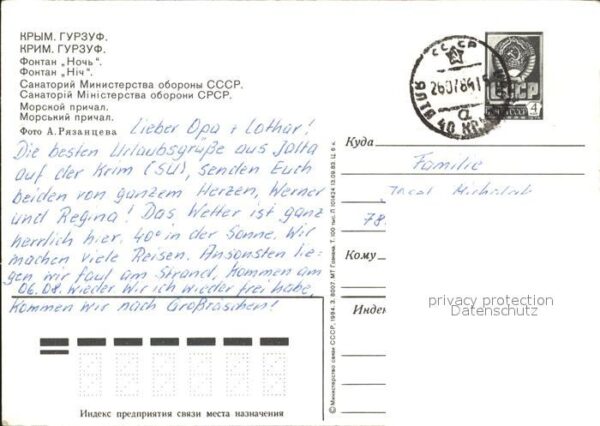 КРЫМ. ГУРЗУФ.
КРИМ. ГУРЗУФ.
Фонтан „Ночь".
Фонтан „Ніч".
Санаторий Министерства обороны СССР.
Санаторій Міністерства оборони СРСР.
Морской причал.
Морський причал.
Фото А. Рязанцева
Lieber Opa + Lothar!
Die besten Urlaubsgrüße aus Jalta
auf der Krim (SU), senden Euch
beiden von ganzem Herzen, Werner
und Regina! Das Wetter ist ganz
herrlich hier. 40° in der Sonne. Wir
machen viele Reisen. Ansonsten lie-
gen wir faul am Strand, kommen am
06.08. wieder. Wir ich wieder frei habe,
kommen wir nach Großräschen!
Индекс предприятия связи места назначения
© Министерство связи СССР, 1984. З. 8007. МТ Гознака. Т. 100 тыс.
СССР
ЯЛТА
СССР
4
Куда
Familie
78.
Кому
Индек
privacy protection
Datenschutz